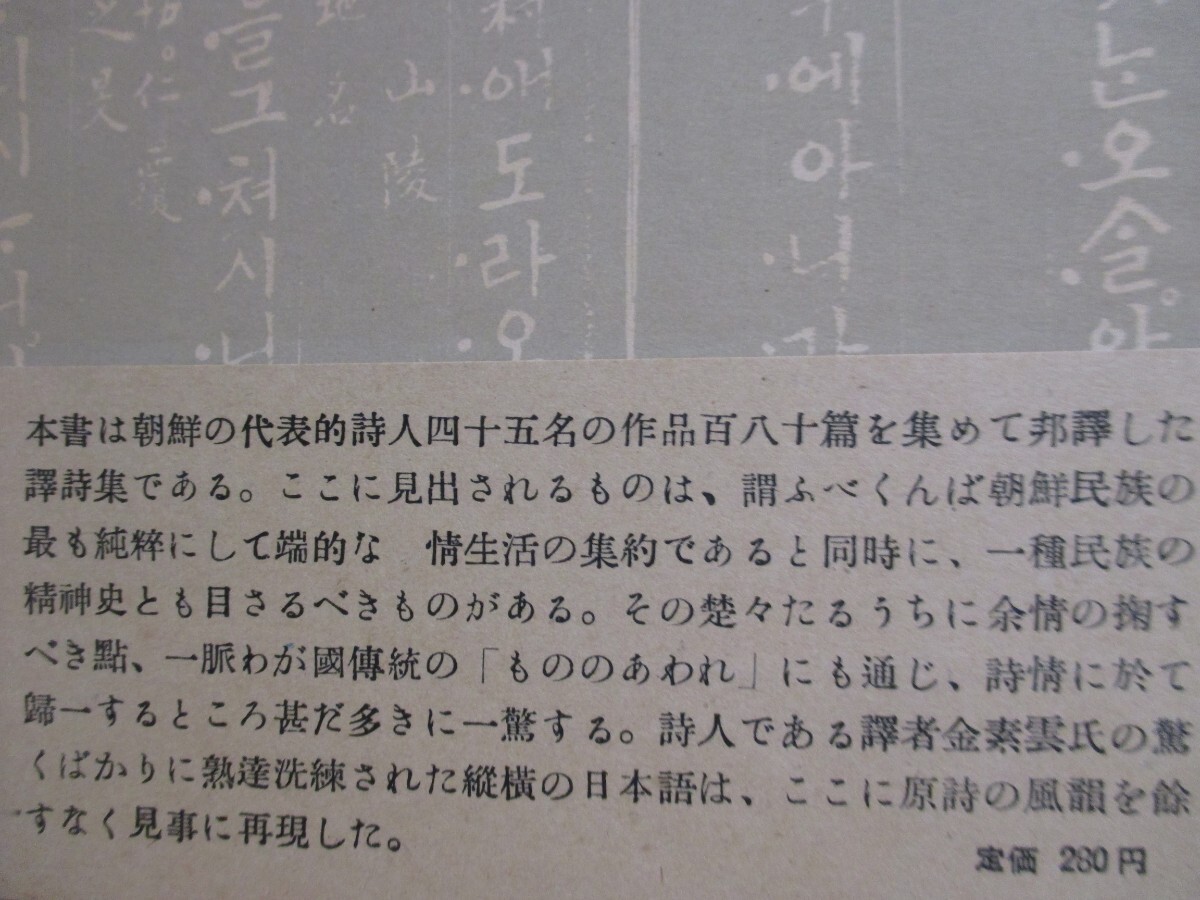 는오ᄉᆞᆯ
에아니
애도라오
山陵
地名
을그쳐시니
仁
之
昊
本書は朝鮮の代表的詩人四十五名の作品百八十篇を集めて邦譯した
譯詩集である。ここに見出されるものは、謂ふべくんば朝鮮民族の
最も純粹にして端的な　情生活の集約であると同時に、一種民族の
精神史とも目さるべきものがある。その楚々たるうちに余情の掬す
べき點、一脈わが國傳統の「もののあわれ」にも通じ、詩情に於て
歸一するところ甚だ多きに一驚する。詩人である譯者金素雲氏の驚
くばかりに熟達洗練された縱橫の日本語は、ここに原詩の風韻を餘
すなく見事に再現した。
定価 280円